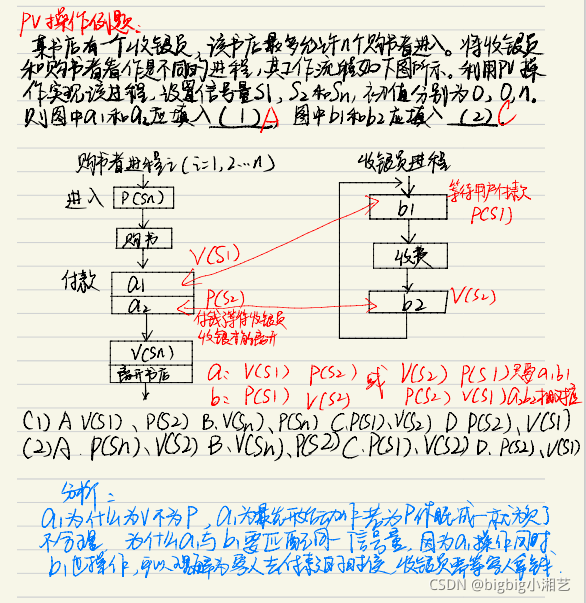 PV操作例题:
某书店有一个收银员,该书店最多允许n个购书者进入。将收银员
和购书者看作是不同的进程,其工作流程如下图所示。利用PV操
作实现该过程,设置信号量S1,S2和Sn,初值分别为0,0,n.
则图中a1和a2应填入 (1)A 图中b1和b2应填入 (2)C
购书者进程i (i=1,2…n)
收银员进程
进入 P(Sn)
等待用户付款
b1
P(S1)
购书
V(S1)
收费
付款
a1
a2
P(S2)
b2
V(S2)
付钱了等待收银员
V(Sn)
离开书店
a: V(S1) P(S2) 或 V(S2) P(S1) 只要a1b1
b: P(S1) V(S2) P(S2) V(S1) a2b2相对应
(1) A V(S1)、P(S2) B.V(Sn)、P(Sn) C.P(S1)、V(S2) D P(S2)、V(S1)
(2) A. P(Sn)、V(S2) B.V(Sn)、P(S2) C.P(S1)、V(S2) D. P(S2)、V(S1)
分析:
a1为什么为V不为P,a1为最先开始动作若为P作
不合理 为什么a1与b1要匹配同一信号量,因为a1操作同时
b1也操作,可以理解为客人去付款的时候 收银员需等客人拿钱.
CSDN @bigbig小湘艺